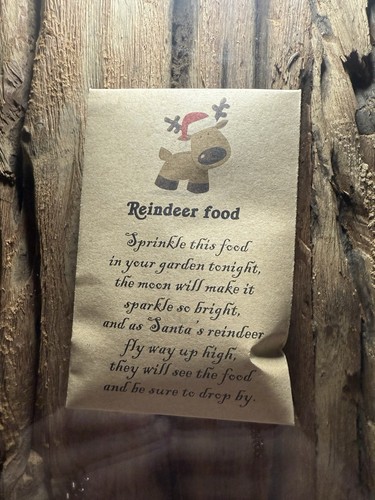 Reindeer food
Sprinkle this food
in your garden tonight,
the moon will make it
sparkle so bright,
and as Santa's reindeer
fly way up high,
they will see the food
and be sure to drop by.